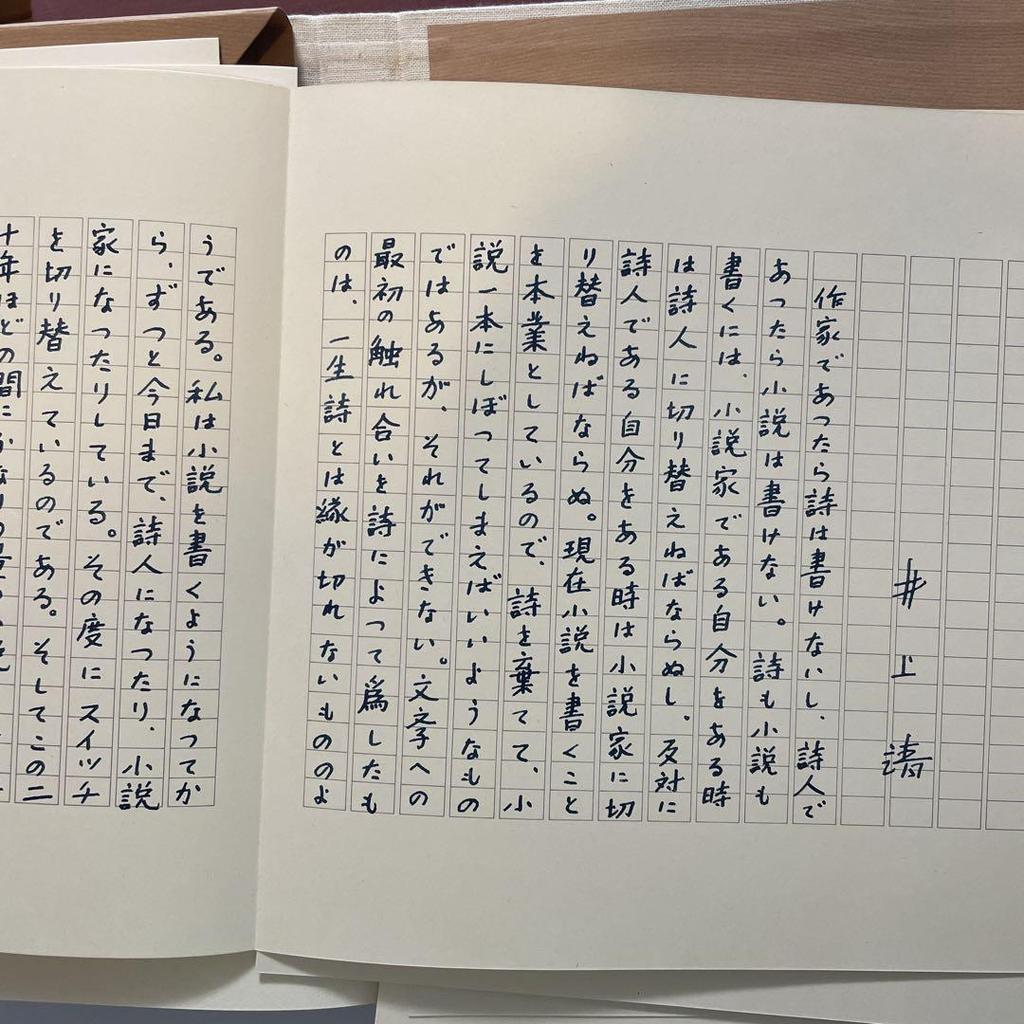 井上靖
作家であつたら詩は書けないし、詩人で
あつたら小説は書けない。詩も小説も
書くには、小説家である自分をある時
は詩人に切り替えねばならぬし、反対に
詩人である自分をある時は小説家に切
り替えねばならぬ。現在小説を書くこと
を本業としているので、詩を棄てて、小
説一本にしぼつてしまえばいいようなもの
ではあるが、それができない。文学への
最初の触れ合いを詩によつて爲したも
のは、一生詩とは縁が切れないもののよ
うである。私は小説を書くようになつてか
ら、ずつと今日まで、詩人になつたり、小説
家になつたりしている。その度にスイッチ
を切り替えているのである。そしてこの二
十年ほどの間に